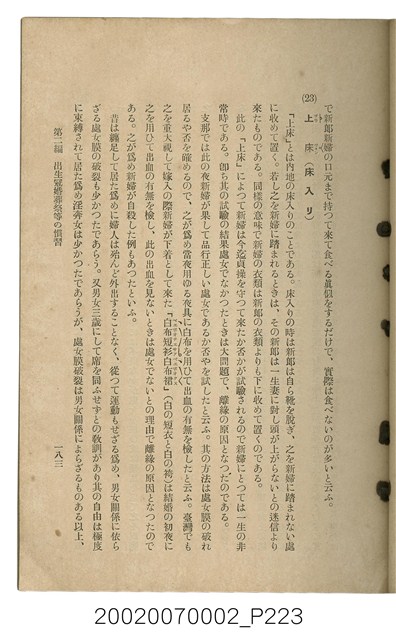 で新郎新婦の口元まで持つて來て食べる眞似をするだけで、實際は食べないのが多いと云ふ。
(23) 上床(床入り)
「上床」とは內地の床入りのことである。床入りの時は新郎は自ら靴を脫ぎ、之を新婦に踏まれない處
に收めて置く。若し之を新婦に踏まれるときは、その新郎は一生妻に對し頭が上がらないとの迷信より
來たものである。同樣の意味で新婦の衣類は新郎の衣類よりも下に收めて置くのである。
此の「上床」によつて新婦は今迄貞操を守つて來たか否かが試驗されるので新婦にとつては一生の非
常時である。卽ち其の試驗の結果處女でなかつたときは大問題で、離緣の原因となつたのである。
支那では此の夜新婦が果して品行正しい處女であるか否やを試したと云ふ。其の方法は處女膜の破れ
居るや否を確めるので、之が爲め當夜用ゆる夜具に白布を用ひて出血の有無を檢したと云ふ。臺灣でも
之を重大視して嫁入の際新婦が下着として來た「白布短衫白布裙」(白の短衣と白の袴)は結婚の初夜に
之を用ひて出血の有無を檢し、此の出血を見ないときは處女でないとの理由で離緣の原因となつたので
ある。之が爲め新婦が自殺した例もあつたといふ。
昔は纏足して居た爲めに婦人は殆んど外出することなく、從つて運動もせざる爲め、男女關係に依ら
ざる處女膜の破裂も少かつたであらう。又男女三歲にして席を同ふせずとの敎訓があり其の自由は極度
に束縛されて居た爲め淫奔女は少かつたであらうが、處女膜破裂は男女關係によらざるものある以上、
第二編 出生冠婚葬祭等の慣習
一八三
20020070002_P223